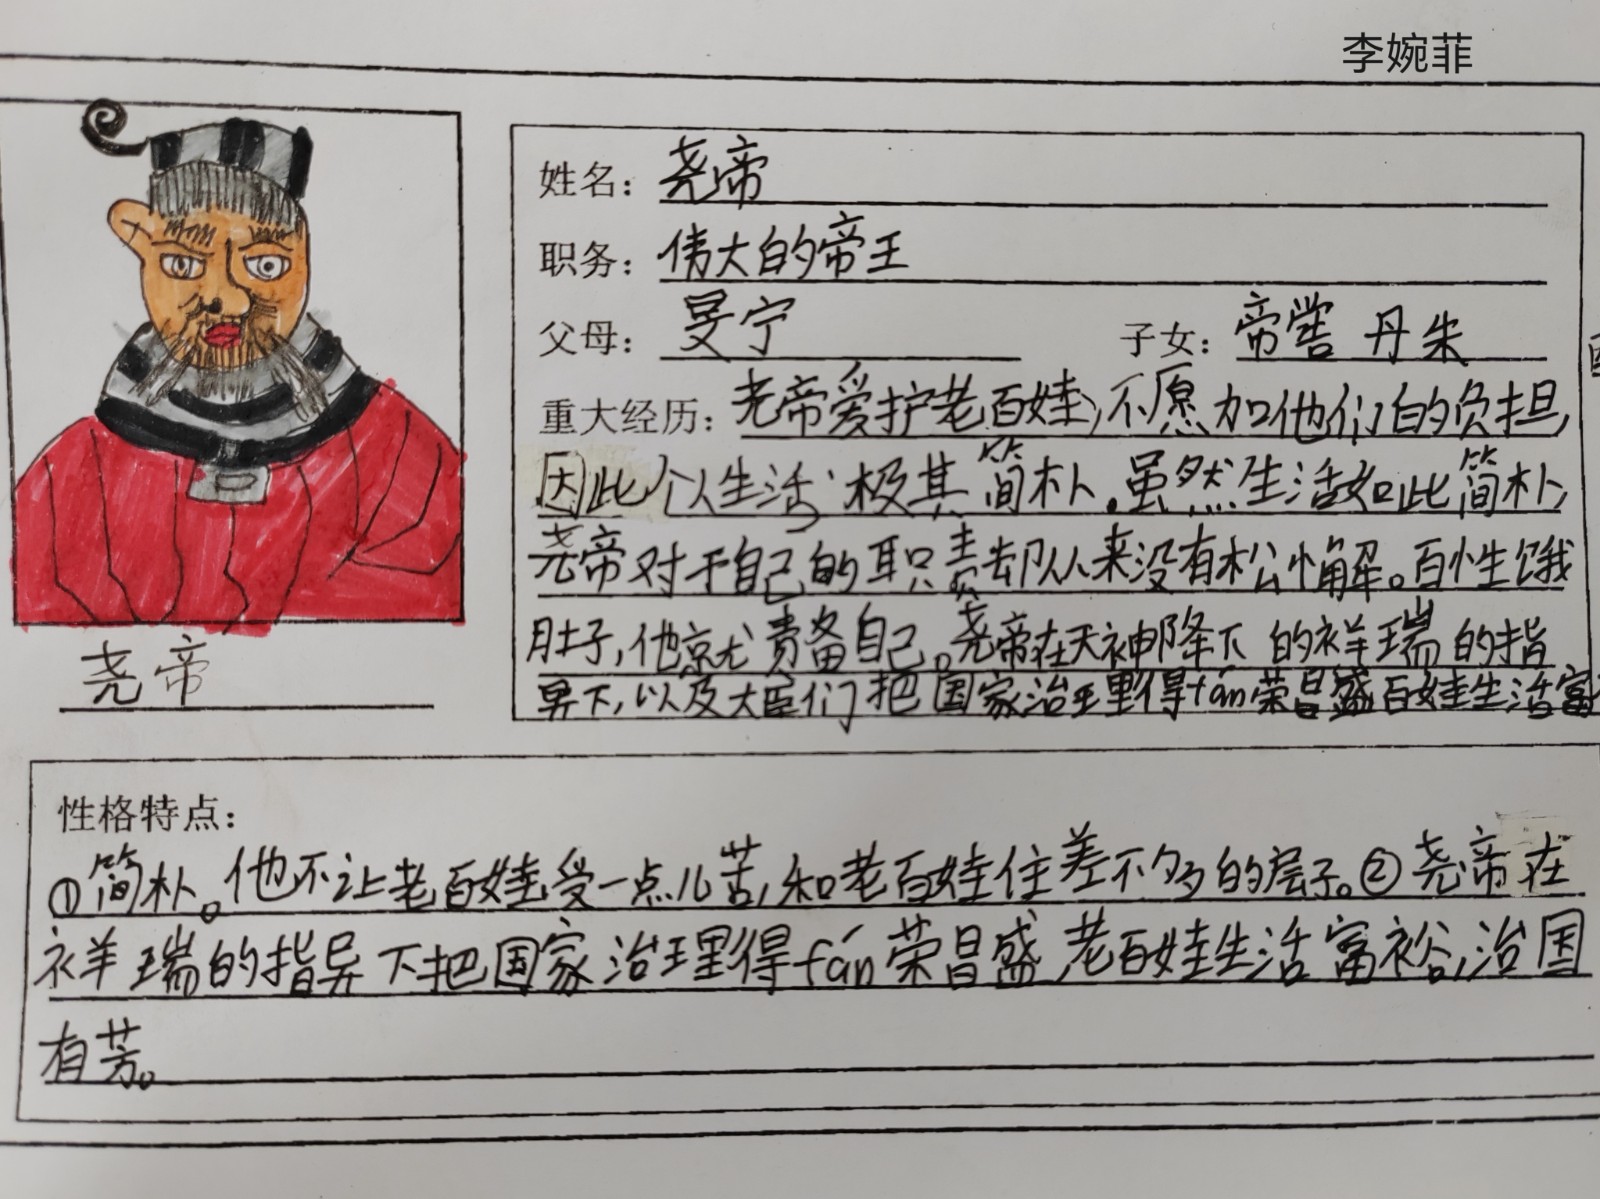 李婉菲
姓名：尧帝
职务：伟大的帝王
父母：旻宁 子女：帝喾 丹朱
重大经历：尧帝爱护老百姓，不愿加他们的负担，
因此个人生活极其简朴。虽然生活如此简朴，
尧帝对于自己的职责却从来没有松懈。百姓饿
肚子，他就责备自己。尧帝在天神降下的祥瑞的指
导下，以及大臣们把国家治理得fán荣昌盛百姓生活富
尧帝
性格特点：
①简朴。他不让老百姓受一点儿苦，和老百姓住差不多的层子。②尧帝在
祥瑞的指导下把国家治理得fán荣昌盛老百姓生活富裕，治国
有芳。